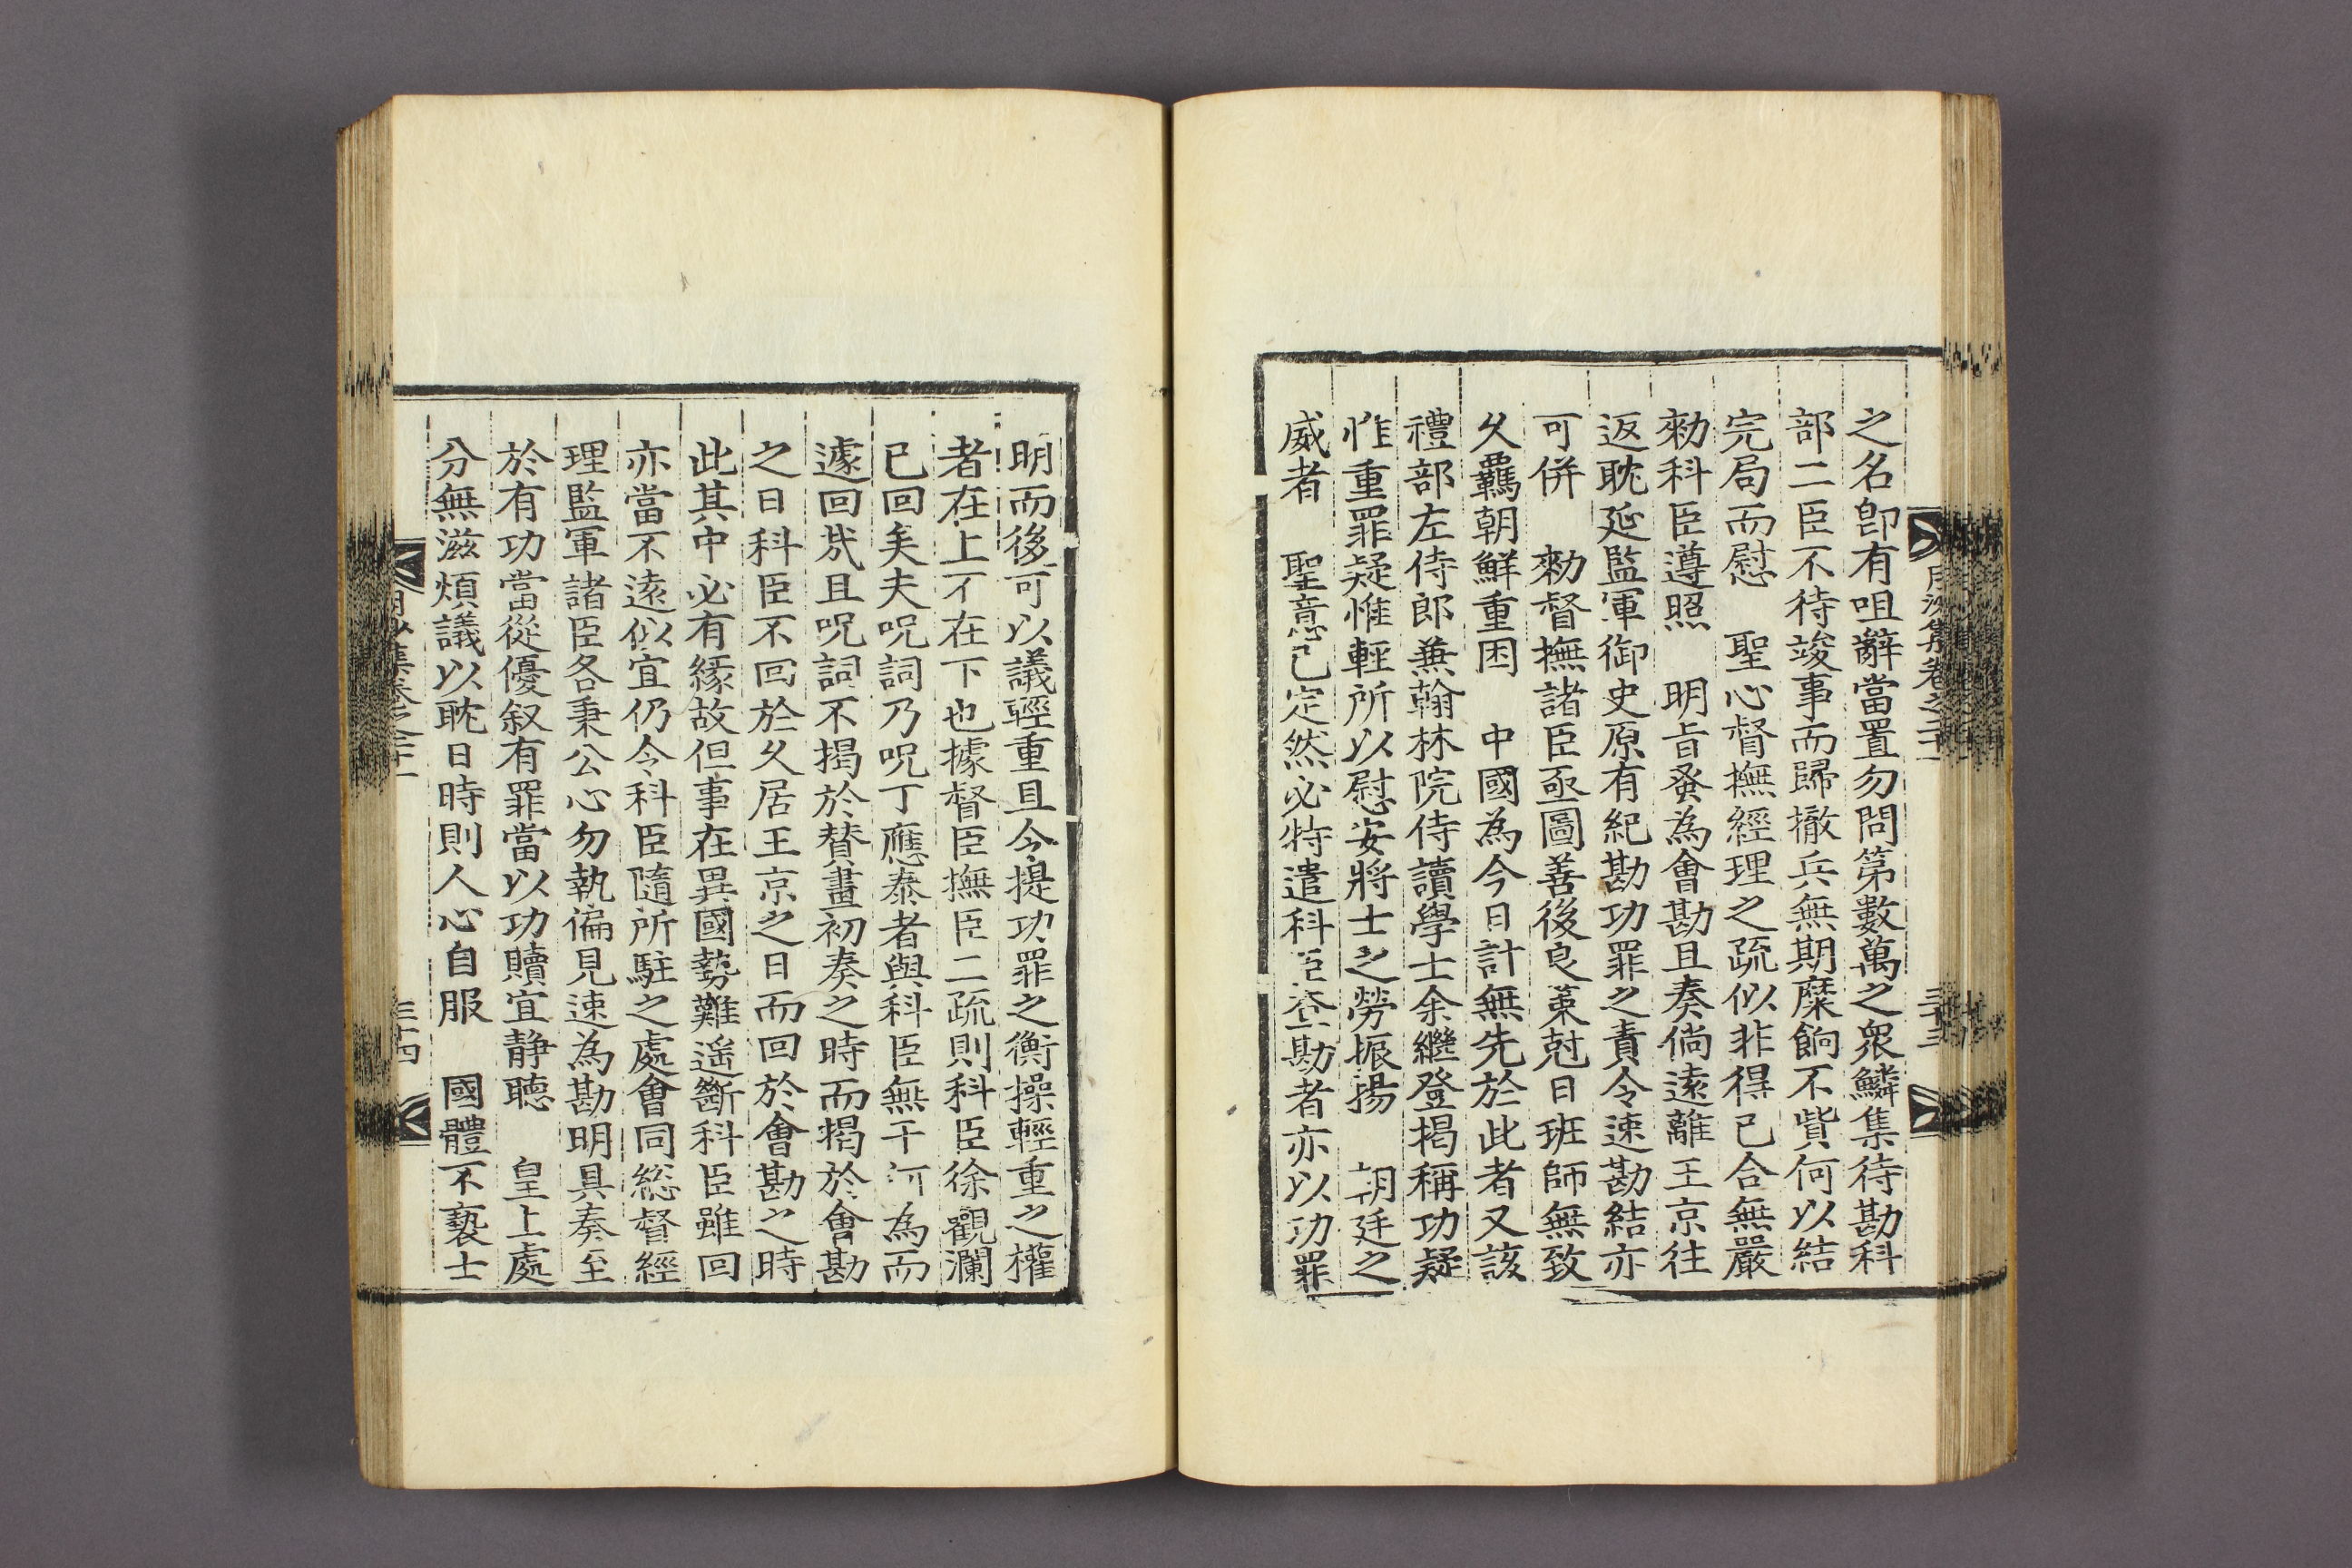 月沙集卷之二十一
三十三
之名卽有咀辭當置勿問第數萬之衆鱗集待勘科
部二臣不待竣事而歸撤兵無期糜餉不貲何以結
完局而慰　聖心督撫經理之疏似非得已合無嚴
勑科臣遵照　明旨蚤為會勘且奏倘遠離王京往
返耽延監軍御史原有紀勘功罪之責令速勘結亦
可併　勑督撫諸臣亟圖善後良策尅日班師無致
久羈朝鮮重困　中國為今日計無先於此者又該
禮部左侍郎兼翰林院侍讀學士余繼登揭稱功疑
惟重罪疑惟輕所以慰安將士之勞振揚　朝廷之
威者　聖意已定然必特遣科臣査勘者亦以功罪
明而後可以議輕重且今提功罪之衡操輕重之權
者在上不在下也據督臣撫臣二疏則科臣徐觀瀾
已回矣夫呪詞乃呪丁應泰者與科臣無干何為而
遽回㢤且呪詞不揭於贊畫初奏之時而揭於會勘
之日科臣不回於久居王京之日而回於會勘之時
此其中必有緣故但事在異國勢難遥斷科臣雖回
亦當不遠似宜仍令科臣隨所駐之處會同総督經
理監軍諸臣各秉公心勿執偏見速為勘明具奏至
於有功當從優叙有罪當以功贖宜静聴　皇上處
分無滋煩議以耽日時則人心自服　國體不褻士
月沙集卷之二十一
三十四